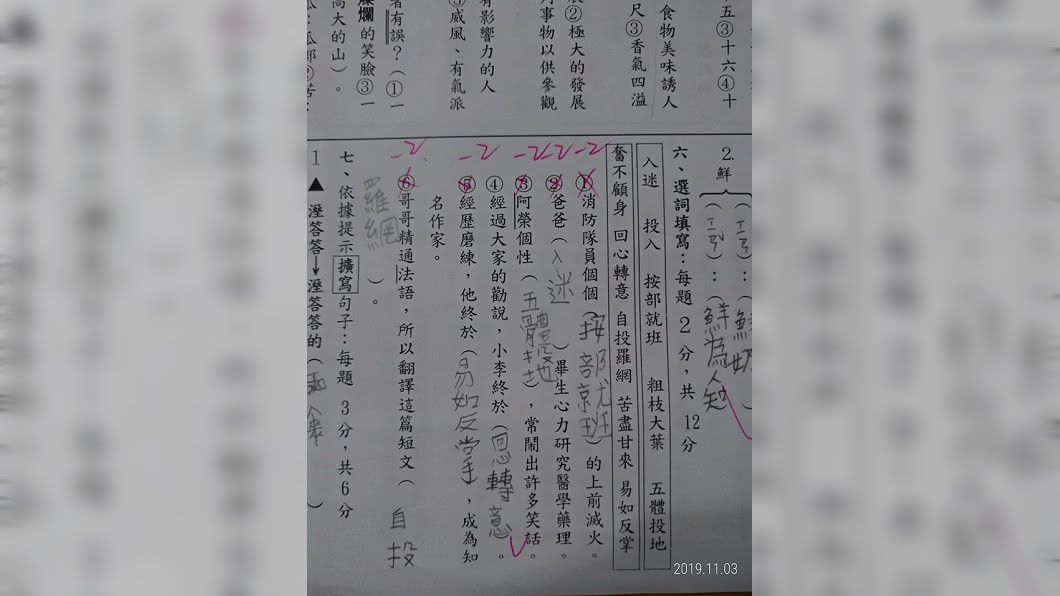 五③十六④十
食物美味誘人
尺③香氣四溢
②極大的發展
事物以供參觀
有影響力的人
③威風、有氣派
著有誤？（①一
爛的笑臉③一
高大的山）。
2.鮮
（ㄒㄧㄢ）：（鮮奶）
（ㄒㄧㄢ）：（鮮為人知
六、選詞填寫：每題2分，共12分
入迷 投入 按部就班 粗枝大葉 五體投地
奮不顧身 回心轉意 自投羅網 苦盡甘來 易如反掌
-2
①消防隊員個個（按部就班）的上前滅火。
-2
②爸爸（入迷）畢生心力研究醫學藥理。
-2
③阿榮個性（五體投地），常鬧出許多笑話。
④經過大家的勸說，小李終於（回心轉意）。
-2
⑤經歷磨練，他終於（易如反掌），成為知
名作家。
-2
⑥哥哥精通法語，所以翻譯這篇短文（自投
羅網）。
七、依據提示擴寫句子：每題3分，共6分
1▲溼答答→溼答答的（雨傘）
2019.11.03